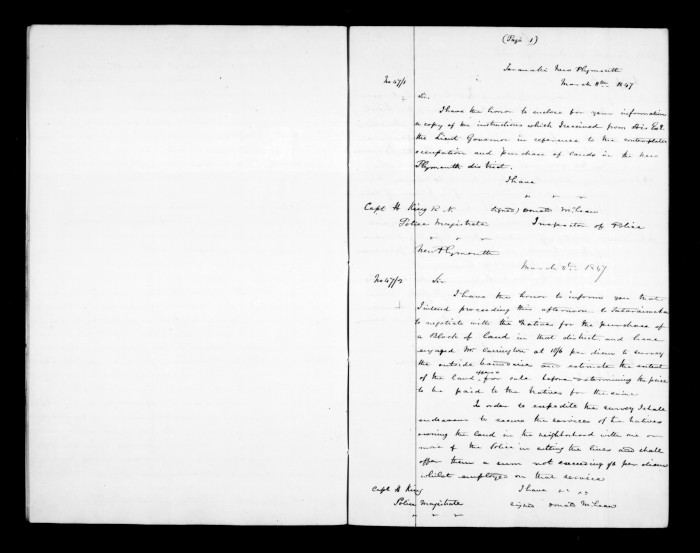 (Page 1)
Taranaki New Plymouth
No 47/1
March 8th 1847
Sir
I have the honor to enclose for your information
a copy of the instructions which I received from His Exl
the Lieut Governor in reference to the contemplated
occupation and purchase of lands in the New
Plymouth district.
I have
" " "
Capt H King R.N. signed) Donald McLean
Police Magistrate Inspector of Police
" " "
New Plymouth
March 1847
No 47/2 Sir
I have the honor to inform you that
I intend proceeding this afternoon to Tataraimaka
to negotiate with the Natives for the purchase of
a Block of land in that district and have
engaged Mr Carrington at 10/6 per diem to survey
the outside boundaries and estimate the extent
of the land offered for sale before determining the price
to be paid to the Natives for the same
In order to expedite the survey I shall
endeavour to secure the services of the Natives
owning the land in the neighborhood with one or
more of the Police in cutting the lines and shall
offer them a sum not exceeding per diem
whilst employed on that service
Capt H King I have " " "
Police Magistrate signed Donald McLean
" " "